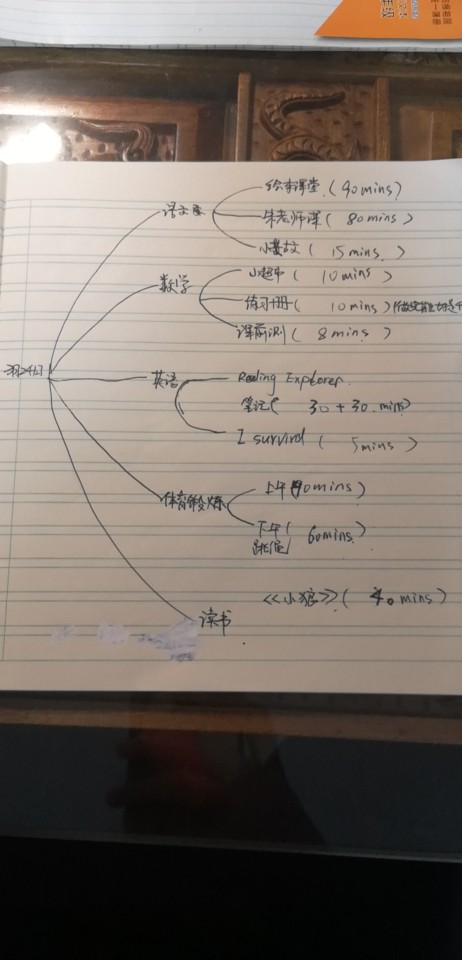 语文
绘本课堂 (90mins)
朱老师课 (80mins)
(15 mins)
数学
小超市 (10 mins)
练习册 (10 mins)
课前测 (8 mins)
英语
Reading Explorer
笔记( 30 + 30 mins)
I survived ( 5 mins )
体育锻炼
上午
下午( 60mins
跳尾)
读书
《小狼》( 40mins)